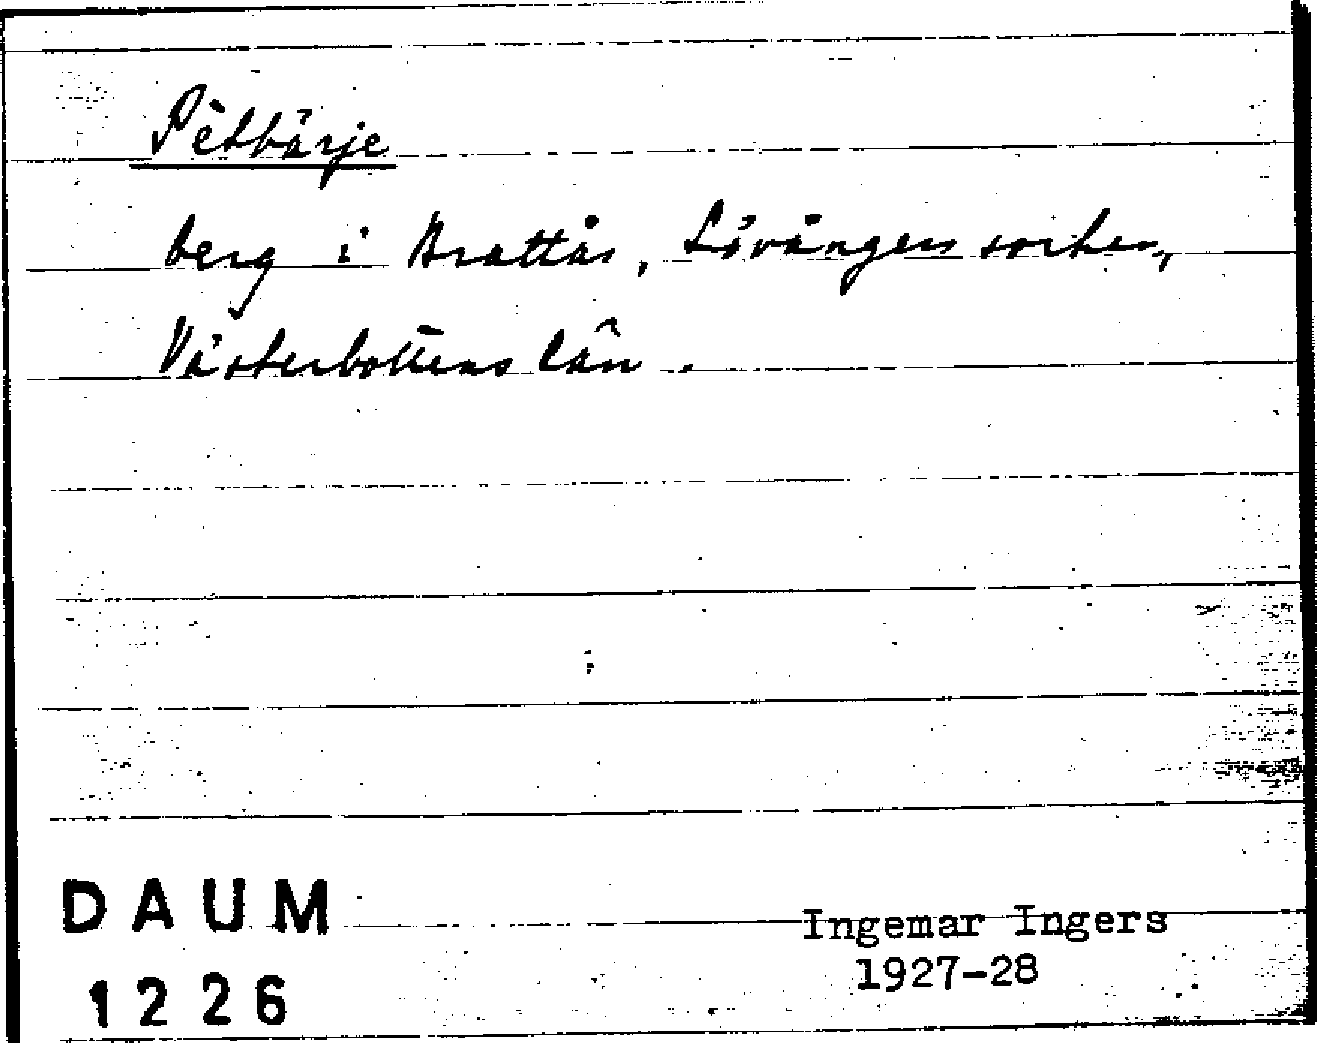 Pètbärje
berg i Brattås, Lövångers socken,
Västerbottens län.
DAUM
1226
Ingemar Ingers
1927-28